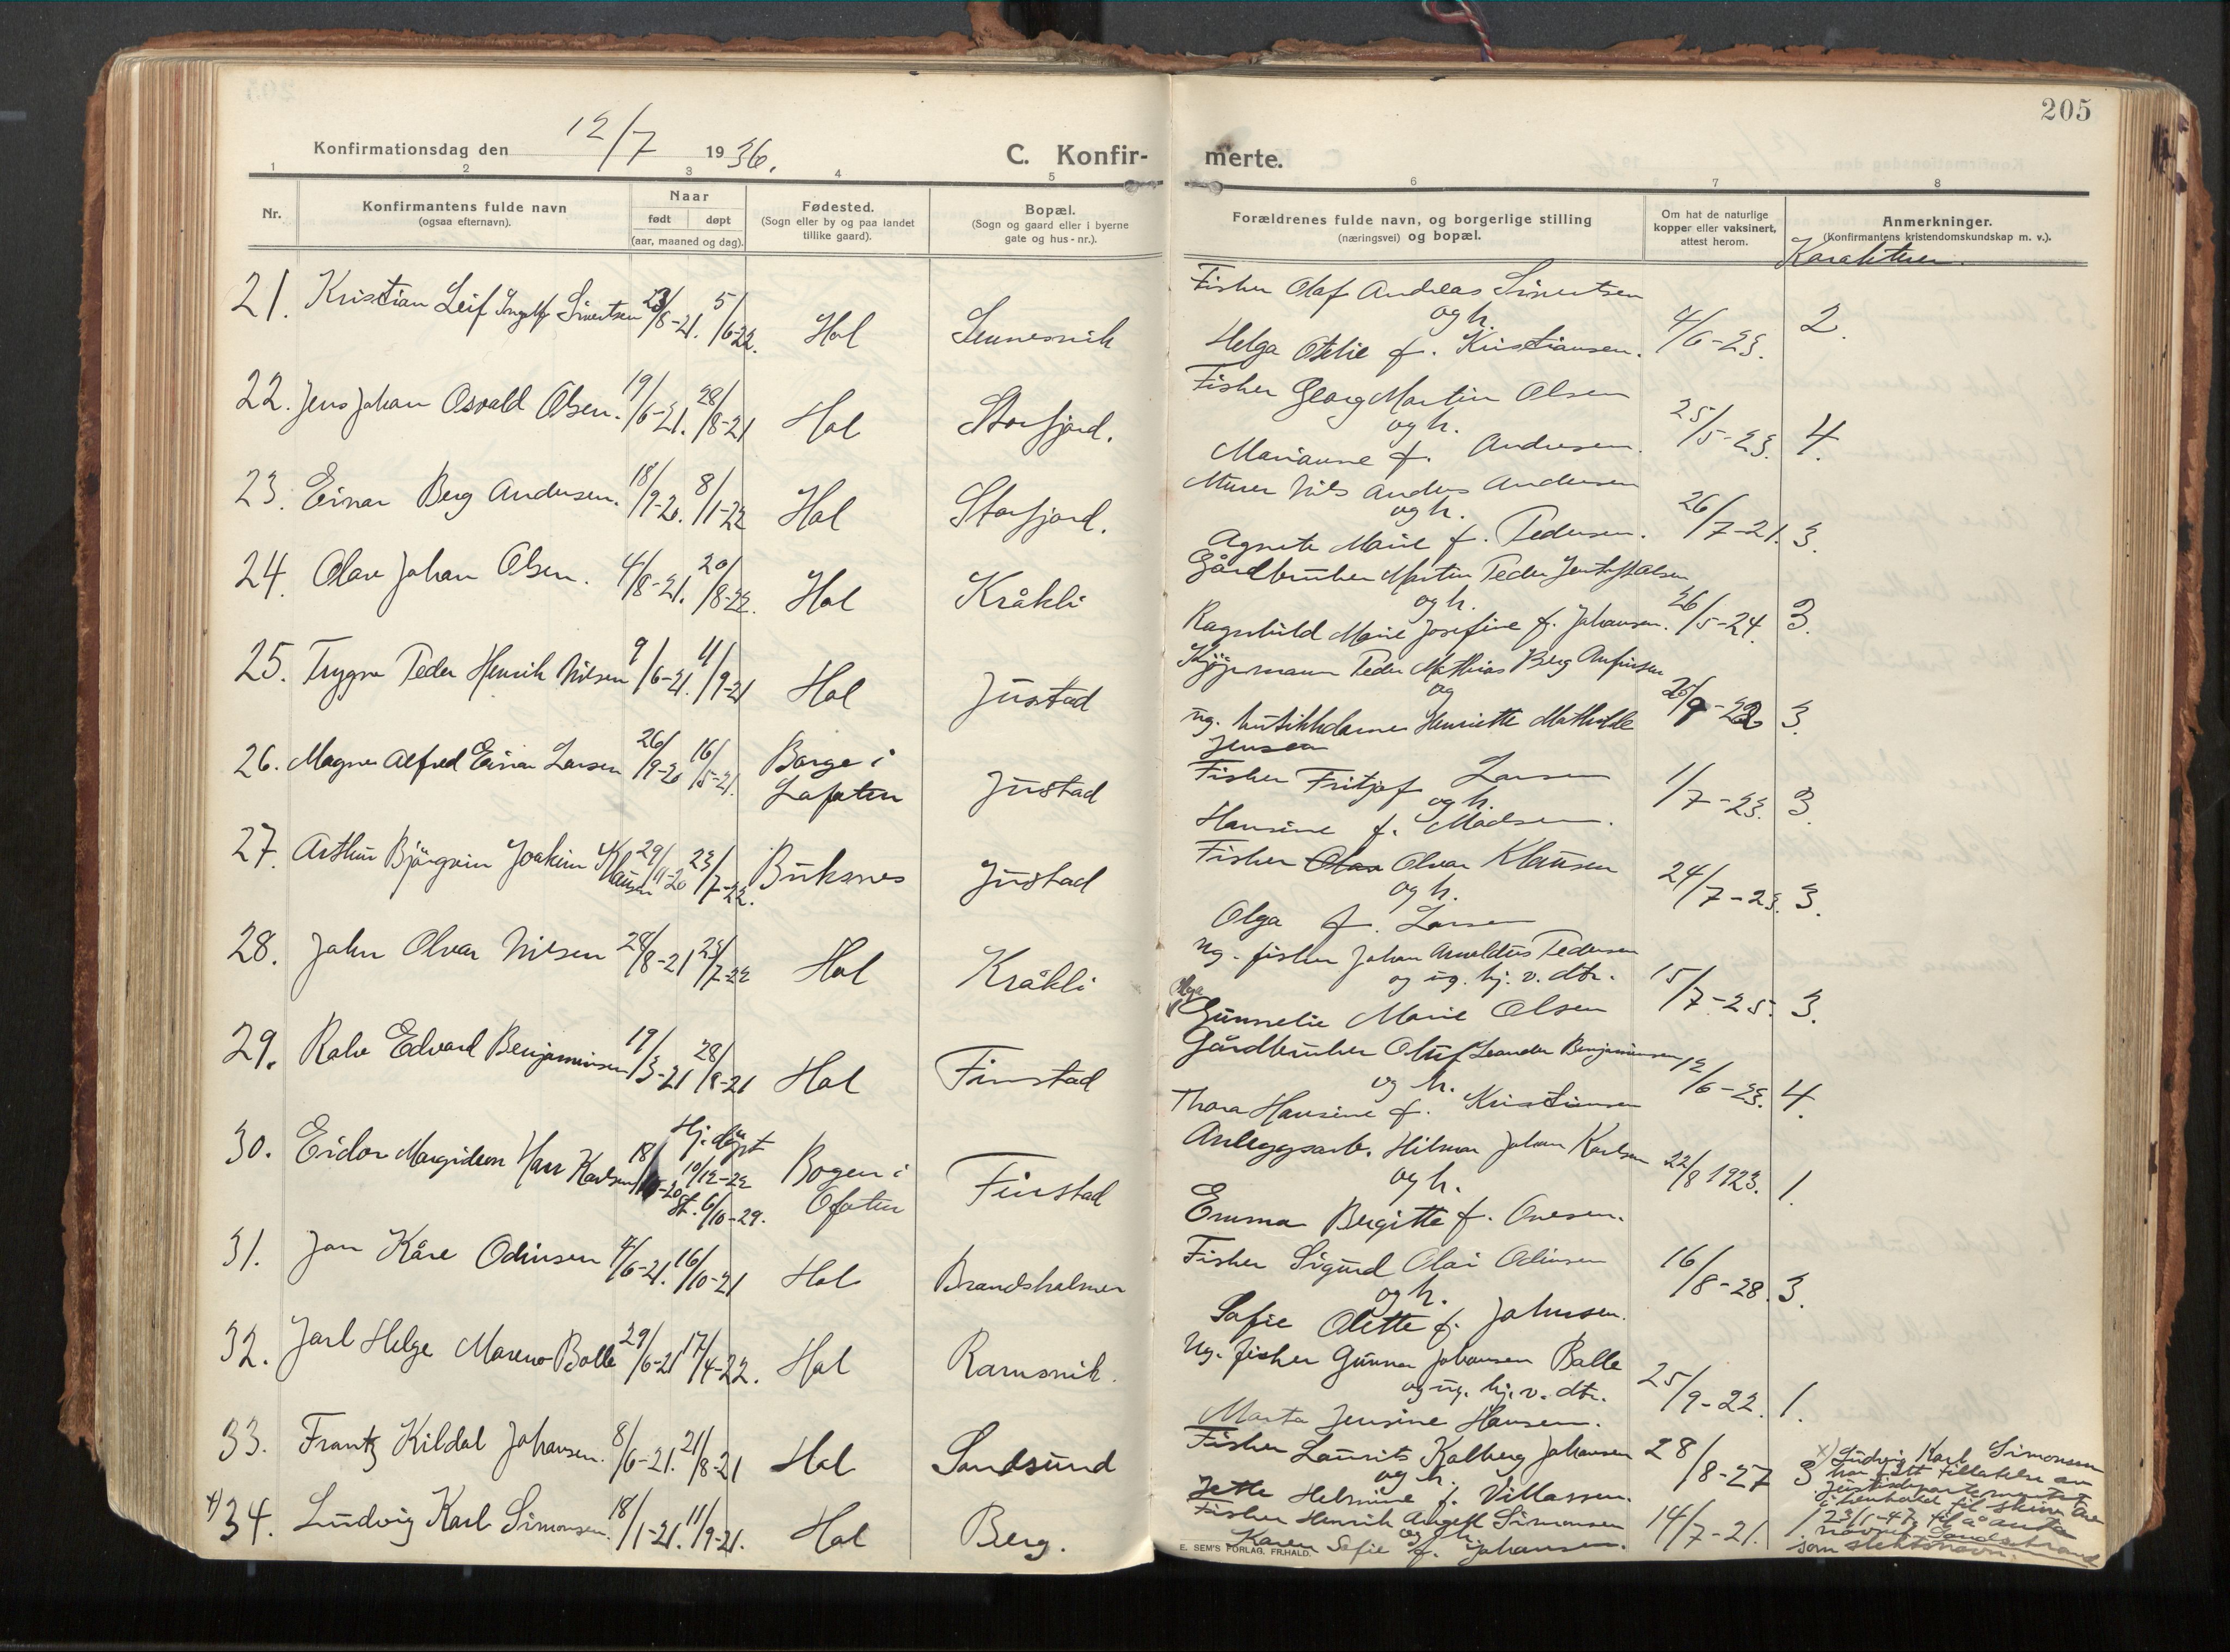 205
Konfirmationsdag den 12/7 1936.
C. Konfir-
merte.
1 2 3 4 5 6 7 8
Nr.
Konfirmantens fulde navn
(ogsaa efternavn).
Naar
født døpt
(aar, maaned og dag).
Fødested.
(Sogn eller by og paa landet
tillike gaard).
Bopæl.
(Sogn og gaard eller i byerne
gate og hus-nr.).
Forældrenes fulde navn, og borgerlige stilling
(næringsvei) og bopæl.
Om hat de naturlige
kopper eller vaksinert,
attest herom.
Anmerkninger.
(Konfirmantens kristendomskundskap m. v.).
Karakterer.
21. Kristian Leif Ingolf Sivertsen 23/8-21. 5/6-22. Hol
Fisker Olaf Andreas Sivertsen
og h.
Helga Otelie f. Kristiansen. 4/6-23. 2.
22. Jens Johan Osvald Olsen. 19/6-21. 28/8-21 Hol Storfjord.
Fisker Georg Martin Olsen
og h.
Marianne f. Andersen. 25/5-23. 4.
23. Einar Berg Andersen. 18/9-20. 8/1-22 Hol Storfjord.
Murer Nils Anders Andersen
og h.
Agnete Marie f. Pedersen. 26/7-21. 3.
24. Olav Johan Olsen. 4/8-21. 20/8-22. Hol Kråkli
Gårdbruker Martin Peder Olsen
og h.
Ragnhild Marie Josefine f. Johansen. 26/5-24. 3.
25. Trygve Peder Henrik Nilsen 9/6-21. 4/9-21 Hol Justad
Peder Mathias Berg
og
ug. Henriette Mathilde
Jensen 3.
26. Magne Alfred Einar Larsen 26/9-20 16/5-21. Borge i
Lofoten Justad
Fisker Fritjof Larsen
og h.
Hansine f. Madsen. 1/7-23. 3.
27. Arthur Bjørgvin Joakim Klausen 29/11-20 23/7-22. Buksnes Justad
Fisker Olav Olvar Klausen
og h.
Olga f. Larsen 24/7-23. 3.
28. John Olvar Nilsen 28/8-21 23/7-22 Hol Kråkli
Ug. fisker Johan Arnoldus Pedersen
og ug. hj. v. dtr.
Olga
Gunnelie Marie Olsen 15/7-25. 3.
29. Ralv Edvard Benjaminsen 19/3-21 28/8-21 Hol Finstad
Gårdbruker Oluf Leander Benjaminsen
og h.
Thora Hansine f. Kristiansen 12/6-23. 4.
30. Eidar Margideon Hans Karlsen
Hj. døpt
10/12-22
st. 6/10-29.
Bogen i
Ofoten Finstad
Anleggsarb. Hilmar Johan Karlsen
og h.
Emma Bergitte f. Onesen. 22/8 1923. 1.
31. Jan Kåre Odinsen 4/6-21. 16/10-21 Hol Brandsholmen
Fisker Sigurd Olai Odinsen
og h.
Sofie Olette f. Johnsen. 16/8-28. 3.
32. Jarl Helge Mareno Bolle 29/6-21 17/4-22. Hol Ramsvik.
Ug. fisker Gunnar Johansen Bolle
og ug. hj. v. dtr.
Marta Jensine Hansen. 25/9-22. 1.
33. Frantz Kildal Johansen. 8/6-21. 21/8-21 Hol Sandsund
Fisker Laurits Kalberg Johansen
og h.
Jette Helmine f. Villassen. 28/8-27 3
x) 34. Ludvig Karl Simonsen. 18/1-21. 11/9-21. Hol Berg.
Fisker Henrik Angell Simonsen
og h.
Karen Sofie f. Johansen. 14/7-21. 1.
x) Ludvig Karl Simonsen
har fått tillatelse av
Justisdepartementet
i henhold til skriv. av
23/1-47 til å anta
navnet Sandstrand
som slektsnavn.
E. SEM'S FORLAG, FR.HALD.